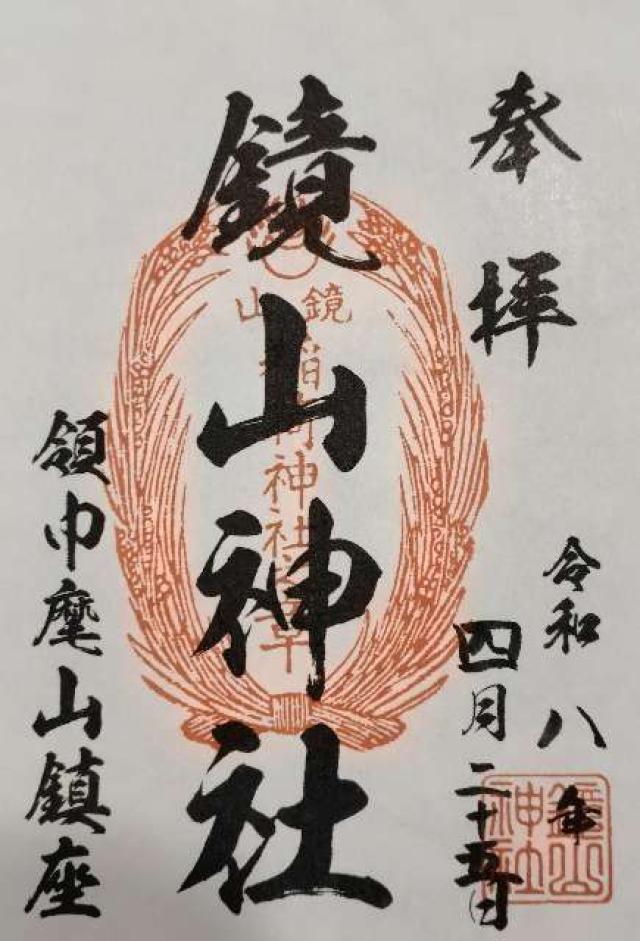 奉拝
令和八年
四月二十五日
鏡山神社
領巾麾山鎮座
鏡山
稲荷神社之章
鏡山
神社